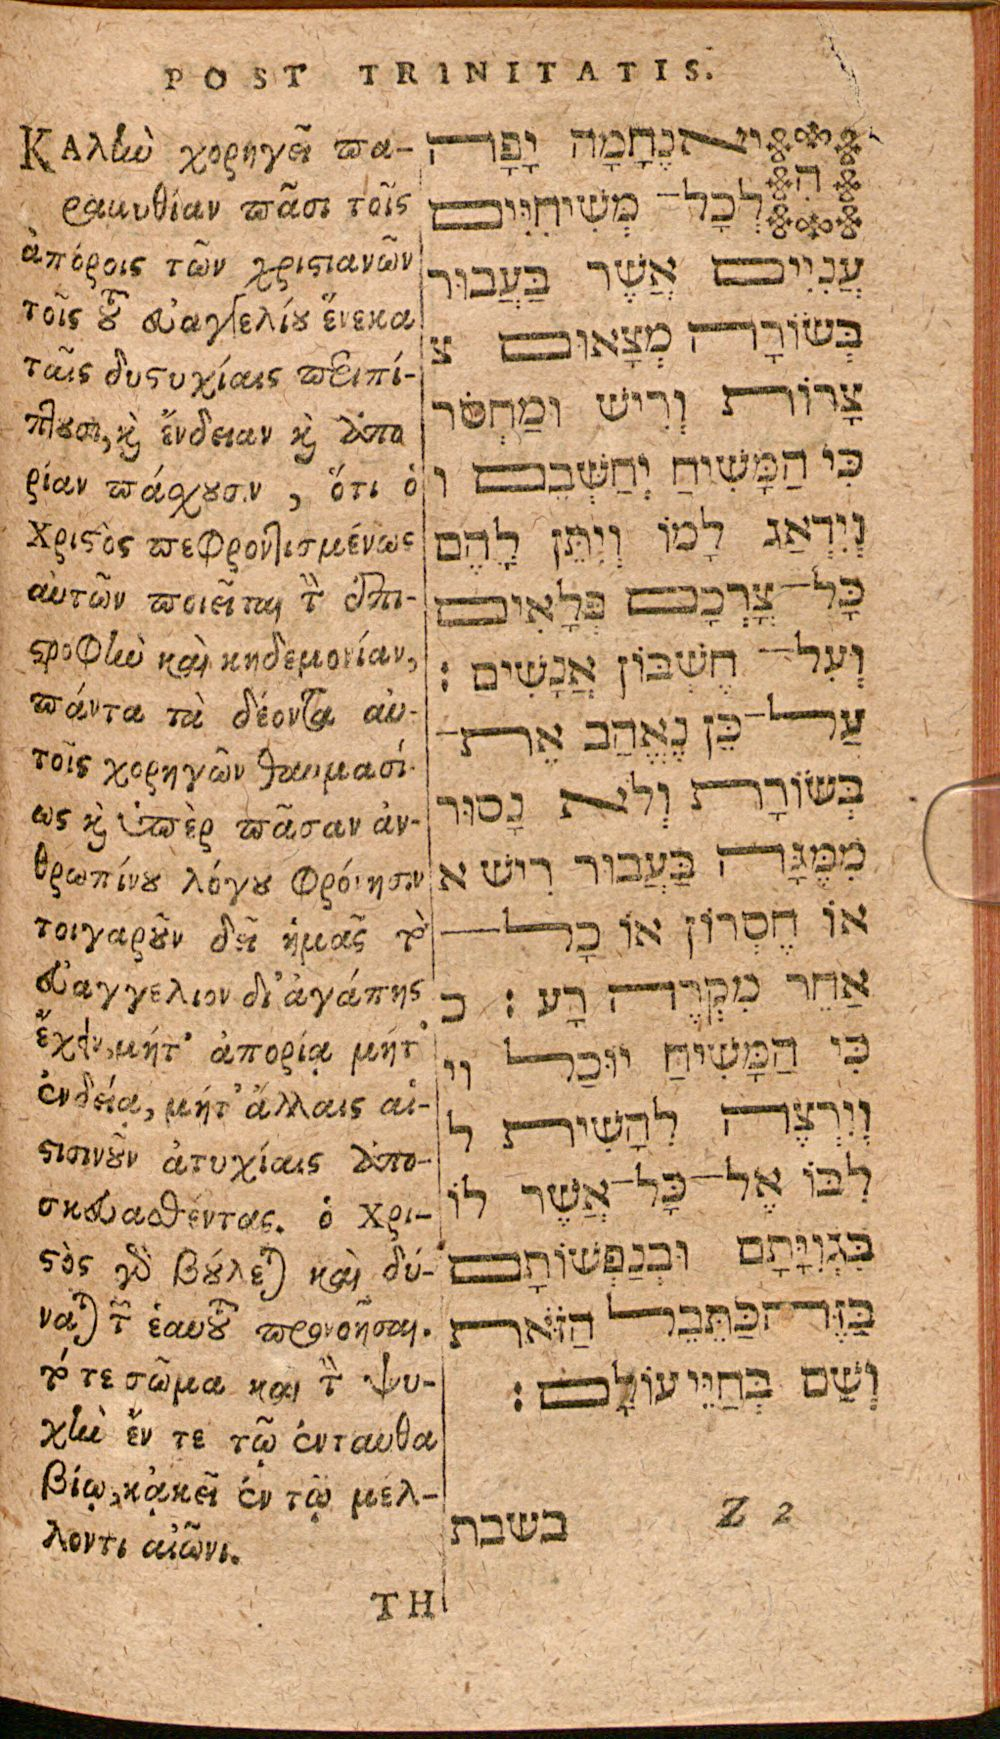 POST TRINITATIS.
ΚΑλὴν χορηγεῖ πα-
ραμυθίαν πᾶσι τοῖς
ἀπόροις τῶν χριστιανῶν
τοῖς τοῦ εὐαγγελίου ἕνεκα
ταῖς δυστυχίαις περιπί-
πτουσι, καὶ ἔνδειαν καὶ ἀπο
ρίαν πάσχουσιν, ὅτι ὁ
Χριστὸς πεφροντισμένως
αὐτῶν ποιεῖται τὴν ἐπι-
στροφὴν καὶ κηδεμονίαν,
πάντα τὰ δέοντα αὐ-
τοῖς χορηγῶν θαυμασί-
ως καὶ ὑπὲρ πᾶσαν ἀν-
θρωπίνου λόγου φρόνησιν
τοιγαροῦν δεῖ ἡμᾶς τὸ
εὐαγγέλιον δι' ἀγάπης
ἔχειν, μήτ' ἀπορίᾳ μήτ'
ἐνδείᾳ, μήτ' ἄλλαις αἱ-
στισινοῦν ἀτυχίαις ἀπο-
σκευασθέντας. ὁ Χρι-
στὸς γὰρ βούλεται καὶ δύ-
ναται τῶν ἑαυτοῦ προνοῆσαι.
τό τε σῶμα καὶ τὴν ψυ-
χὴν ἔν τε τῷ ἐνταυθα
βίῳ, κἀκεῖ ἐν τῷ μέλ-
λοντι αἰῶνι.
TH
הִיא נֶחָמָה יָפָה
לְכָל־ מְשִׁיחִיִּים
עֲנִיִּים אֲשֶׁר בַּעֲבוּר
בְּשׂוֹרָה מְצָאוּם צ
צָרוֹת וְרִישׁ וּמַחְסֹר
כִּי הַמָּשִׁיחַ יְחַשְּׁבֵם ו
וְיִדְאַג לָמוֹ וְיִתֵּן לָהֶם
כָּל־ צָרְכָּם פְּלָאִים
וְעַל־ חֶשְׁבּוֹן אֲנָשִׁים :
עַל־ כֵּן נֶאֱהַב אֶת־
בְּשׂוֹרָת וְלֹא נָסוּר
מִמֶּנָּה בַּעֲבוּר רִישׁ א
אוֹ חֶסְרוֹן אוֹ כָל־
אַחֵר מִקְרֶה רָע : כ
כִּי הַמָּשִׁיחַ יוּכַל וי
וְיִרְצֶה לְהָשִׁית ל
לִבּוֹ אֶל־ כָּל־ אֲשֶׁר לוֹ
בִּגְוִיָּתָם וּבְנַפְשׁוֹתָם
בַּזֶּה בַּתֵּבֵל הַזֹּאת
וְשַׁם בְּחַיֵּי עוֹלָם :
בשבת
Z 2